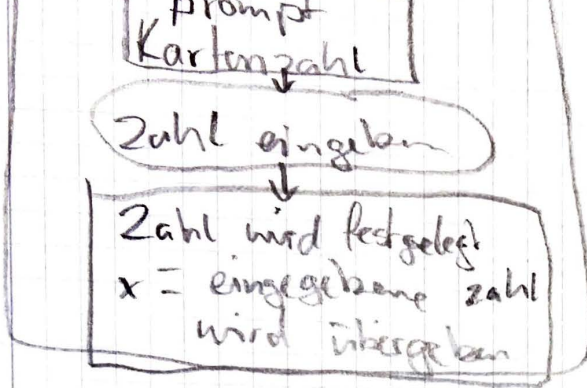 prompt
Kartenzahl
Zahl eingeben
Zahl wird festgelegt
x = eingegebene zahl
wird übergeben